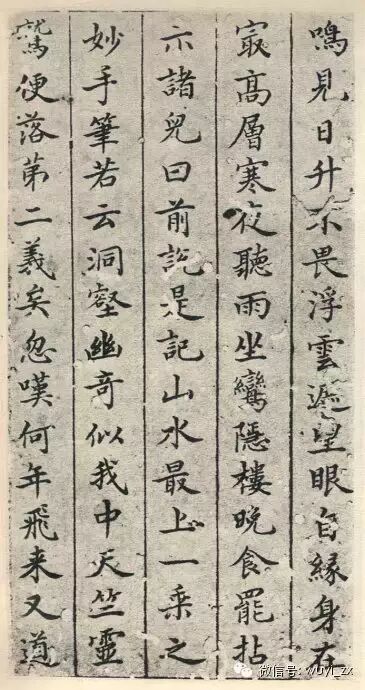 鳴見日升不畏浮雲遮望眼自緣身在
㝡高層寒夜聽雨坐鸞隱樓晚食罷拈
示諸兒曰前説是記山水最上一乘之
妙手筆若云洞壑幽奇似我中天竺靈
鷲便落苐二義矣忽嘆何年飛来又道
微信号: wuyi_zx